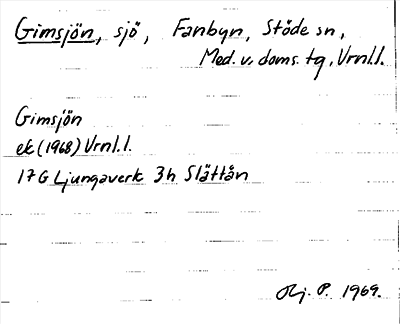 Gimsjön, sjö, Fanbyn, Stöde sn,
Med. v. doms. tg, Vrnl.l.
Gimsjön
ek (1968) Vrnl.l.
17G Ljungaverk 3h Slättån
P. 1969.